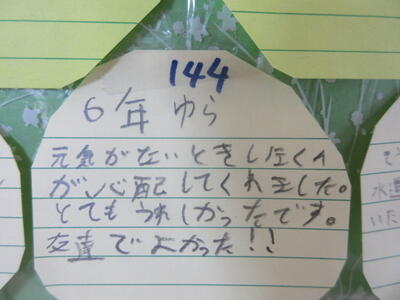 144
6年 ゆら
元気がないときしほくん
が心配してくれました。
とてもうれしかったです。
友達でよかった!!
水道
いた